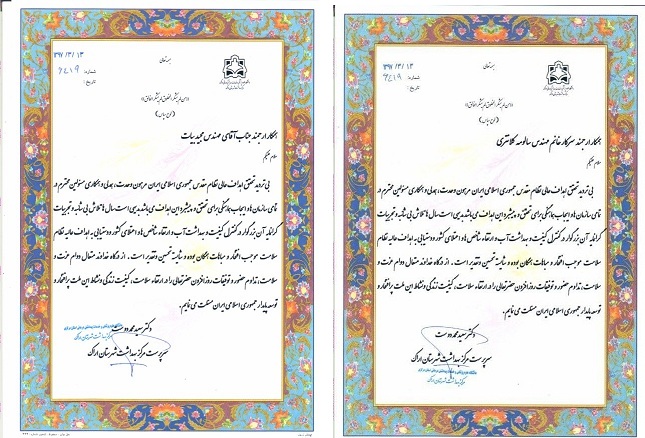 بسمه تعالی
۱۳۹۷/۳/۱۳
شماره: ۶۴۱۹
تاریخ:
«من لم یشکر المخلوق لم یشکر الخالق»
(لوح سپاس)
همکار ارجمند جناب آقای مهندس مجید بیات
سلام علیکم
بی تردید تحقق اهداف عالی نظام مقدس جمهوری اسلامی ایران مرهون وحدت، همدلی و همکاری مسئولین محترم در
تمامی سازمان ها و ایجاب هماهنگی برای تحقق و پیشبرد این اهداف می باشد بدیهی است سال ها تلاش بی شائبه و تجربیات
گرانمایه آن بزرگوار در کنترل کیفیت و بهداشت آب و ارتقاء شاخص ها و اعتلای کشور و دستیابی به اهداف عالیه نظام
سلامت موجب افتخار و مباهات همگان بوده و شایسته تحسین و تقدیر است. از درگاه خداوند متعال دوام عزت و
سلامت، تداوم حضور و توفیقات روزافزون حضرتعالی را در ارتقاء سلامت، کیفیت زندگی و نشاط این ملت پر افتخار و
توسعه پایدار جمهوری اسلامی ایران مسئلت می نمایم.
دکتر سعید محمد دوست
سرپرست مرکز بهداشت شهرستان اراک
بسمه تعالی
۱۳۹۷/۳/۱۳
شماره: ۶۴۱۹
تاریخ:
«من لم یشکر المخلوق لم یشکر الخالق»
(لوح سپاس)
همکار ارجمند سرکار خانم مهندس سالومه کلانتری
سلام علیکم
بی تردید تحقق اهداف عالی نظام مقدس جمهوری اسلامی ایران مرهون وحدت، همدلی و همکاری مسئولین محترم در
تمامی سازمان ها و ایجاب هماهنگی برای تحقق و پیشبرد این اهداف می باشد بدیهی است سال ها تلاش بی شائبه و تجربیات
گرانمایه آن بزرگوار در کنترل کیفیت و بهداشت آب و ارتقاء شاخص ها و اعتلای کشور و دستیابی به اهداف عالیه نظام
سلامت موجب افتخار و مباهات همگان بوده و شایسته تحسین و تقدیر است. از درگاه خداوند متعال دوام عزت و
سلامت، تداوم حضور و توفیقات روزافزون حضرتعالی را در ارتقاء سلامت، کیفیت زندگی و نشاط این ملت پر افتخار و
توسعه پایدار جمهوری اسلامی ایران مسئلت می نمایم.
دکتر سعید محمد دوست
سرپرست مرکز بهداشت شهرستان اراک